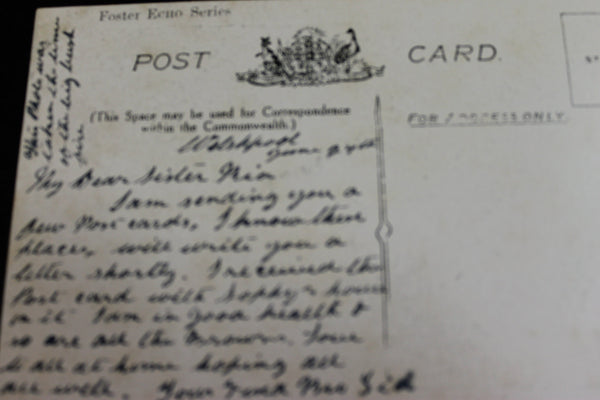 Foster Echo Series
POST CARD.
(This Space may be used for Correspondence
within the Commonwealth.)
FOR ADDRESS ONLY.
This Photo was
taken the time
of the big bush
fire
Welshpool
June
My Dear Sister
I am sending you a
few Post cards, I know
places, will write you a
letter shortly. I received the
Post card with Sophy's home
on it I am in good health &
so are all the Love
to all at home hoping all
are well. Your Fond Bro Sid